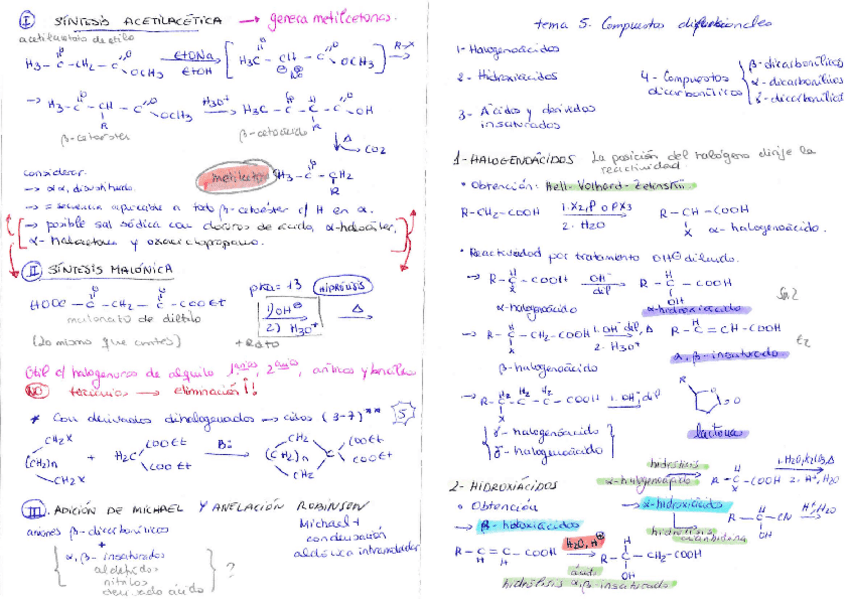 I SÍNTESIS ACETILACÉTICA → genera metilcetonas.
acetilacetato de etilo
H3-C-CH2-C-OCH3 EtONa EtOH [H3C-C-CH-C-OCH3] R-X
→ H3-C-CH-C-OCH3 H3O+ H3C-C-C-C-OH
R R
β-cetoéster β-cetoácido
Δ
CO2
metilcetona H3-C-CH2
R
Considerar.
→ αα, disustituido.
→ = secuencia aplicable a todo β-cetoéster c/ H en α.
→ posible sal sódica con cloruros de ácido, α-haloéster,
α-halocetona y oxaciclopropano.
II SÍNTESIS MALÓNICA
HOOC-CH2-C-COOEt
malonato de dietilo
pka = 13
HIDRÓLISIS
1) OH⁻
2) H3O+
Δ
(lo mismo que antes)
Útil c/ halogenuros de alquilo 1arios, 2arios, arílicos y bencílicos
NO terciarios → eliminación!!
* Con derivados dihalogenados → ciclos (3-7)** 5
CH2X
(CH2)n
CH2X
+ H2C
COOEt
COOEt
B:
CH2
(CH2)n C
CH2
COOEt
COOEt
III. ADICIÓN DE MICHAEL Y ANELACIÓN ROBINSON
aniones β-dicarbonílicos
+
α,β-insaturados
aldehídos
nitrilos
derivado ácido
?
Michael +
condensación
aldólica intramolecular
tema 5. Compuestos difuncionales
1- Halogenoácidos
2- Hidroxiácidos
3- Ácidos y derivados
insaturados
4- Compuestos
dicarbonílicos
β-dicarbonílicos
α-dicarbonílicos
γ-dicarbonílicos
1- HALOGENOÁCIDOS La posición del halógeno dirige la
reactividad
• Obtención: Hell-Volhard-Zelinskii
R-CH2-COOH 1. X2, P o PX3 2. H2O R-CH-COOH
X
α-halogenoácido.
• Reactividad por tratamiento OH⊖ diluido.
→ R-C-COOH OH⁻ dil R-C-COOH
X OH
α-halogenoácido α-hidroxiácido SN2
→ R-C-CH2-COOH 1. OH⁻ dil, Δ 2. H3O+ R-C=CH-COOH
X
β-halogenoácido α,β-insaturado E2
→ R-C-C-C-COOH 1. OH⁻ dil
X
R
O
=O
γ-halogenoácido
δ-halogenoácido
lactona
2- HIDROXIÁCIDOS
• Obtención
→ α-hidroxiácidos
hidrólisis
α-halogenoácido
R-C-COOH
X
2. H+, H2O
hidrólisis
cianhidrina
R-C-CN H+, H2O
OH
→ β-hidroxiácidos
R-C=C-COOH H2O, H⊕ R-C-CH2-COOH
H H OH
ácido
hidrólisis α,β-insaturado